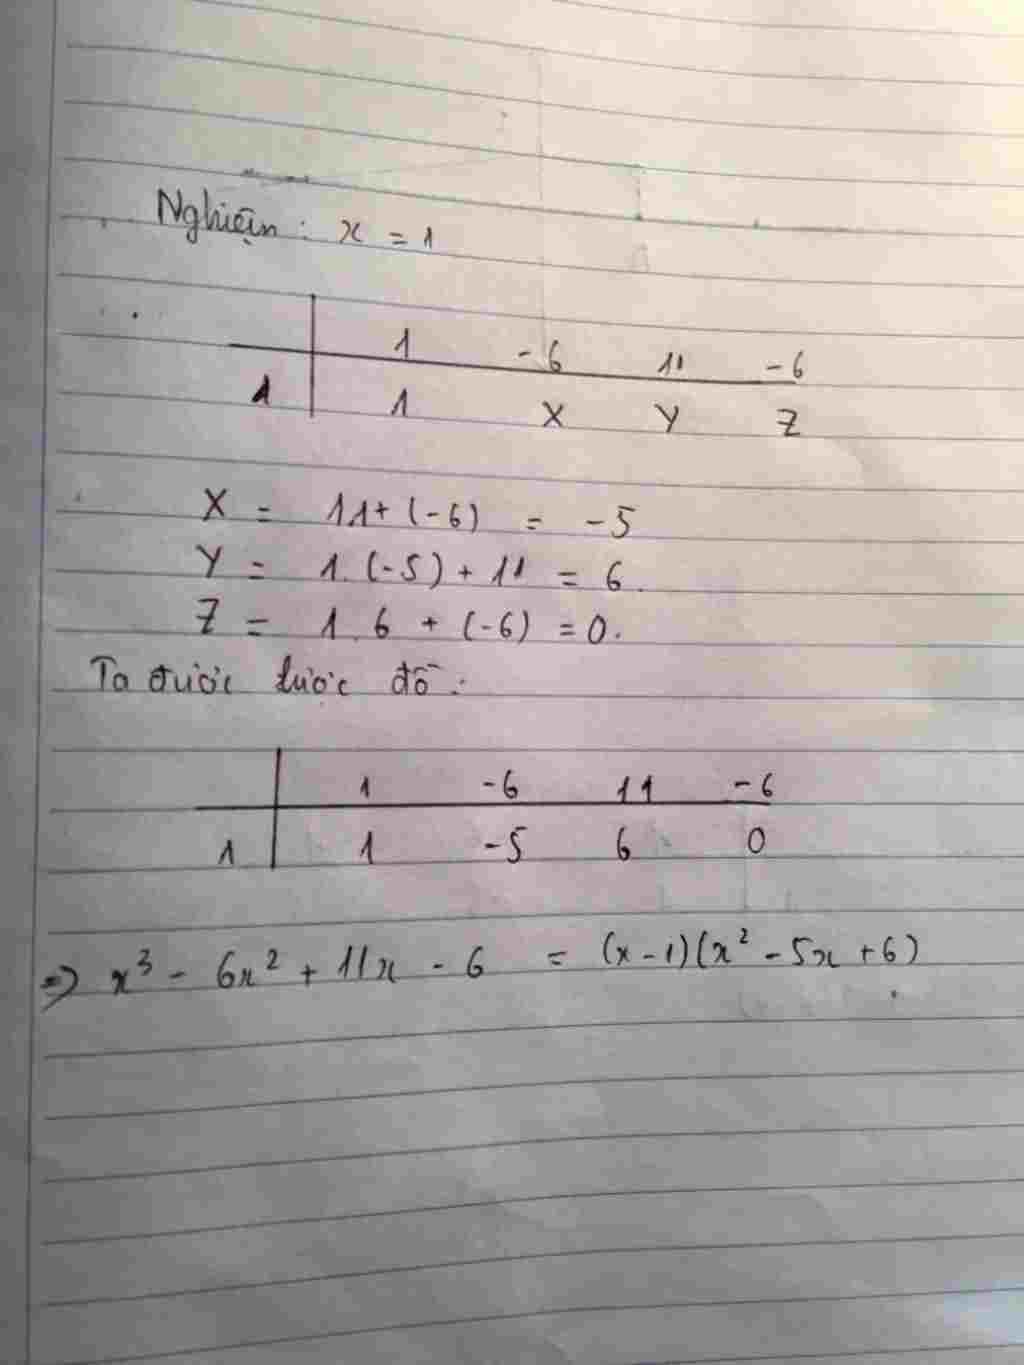 Nghiệm : x = 1
1 -6 11 -6
1 1 X Y Z
X = 1.1 + (-6) = -5
Y = 1. (-5) + 11 = 6.
Z = 1. 6 + (-6) = 0.
Ta được lược đồ :
1 -6 11 -6
1 1 -5 6 0
=> x³ - 6x² + 11x - 6 = (x - 1)(x² - 5x + 6)